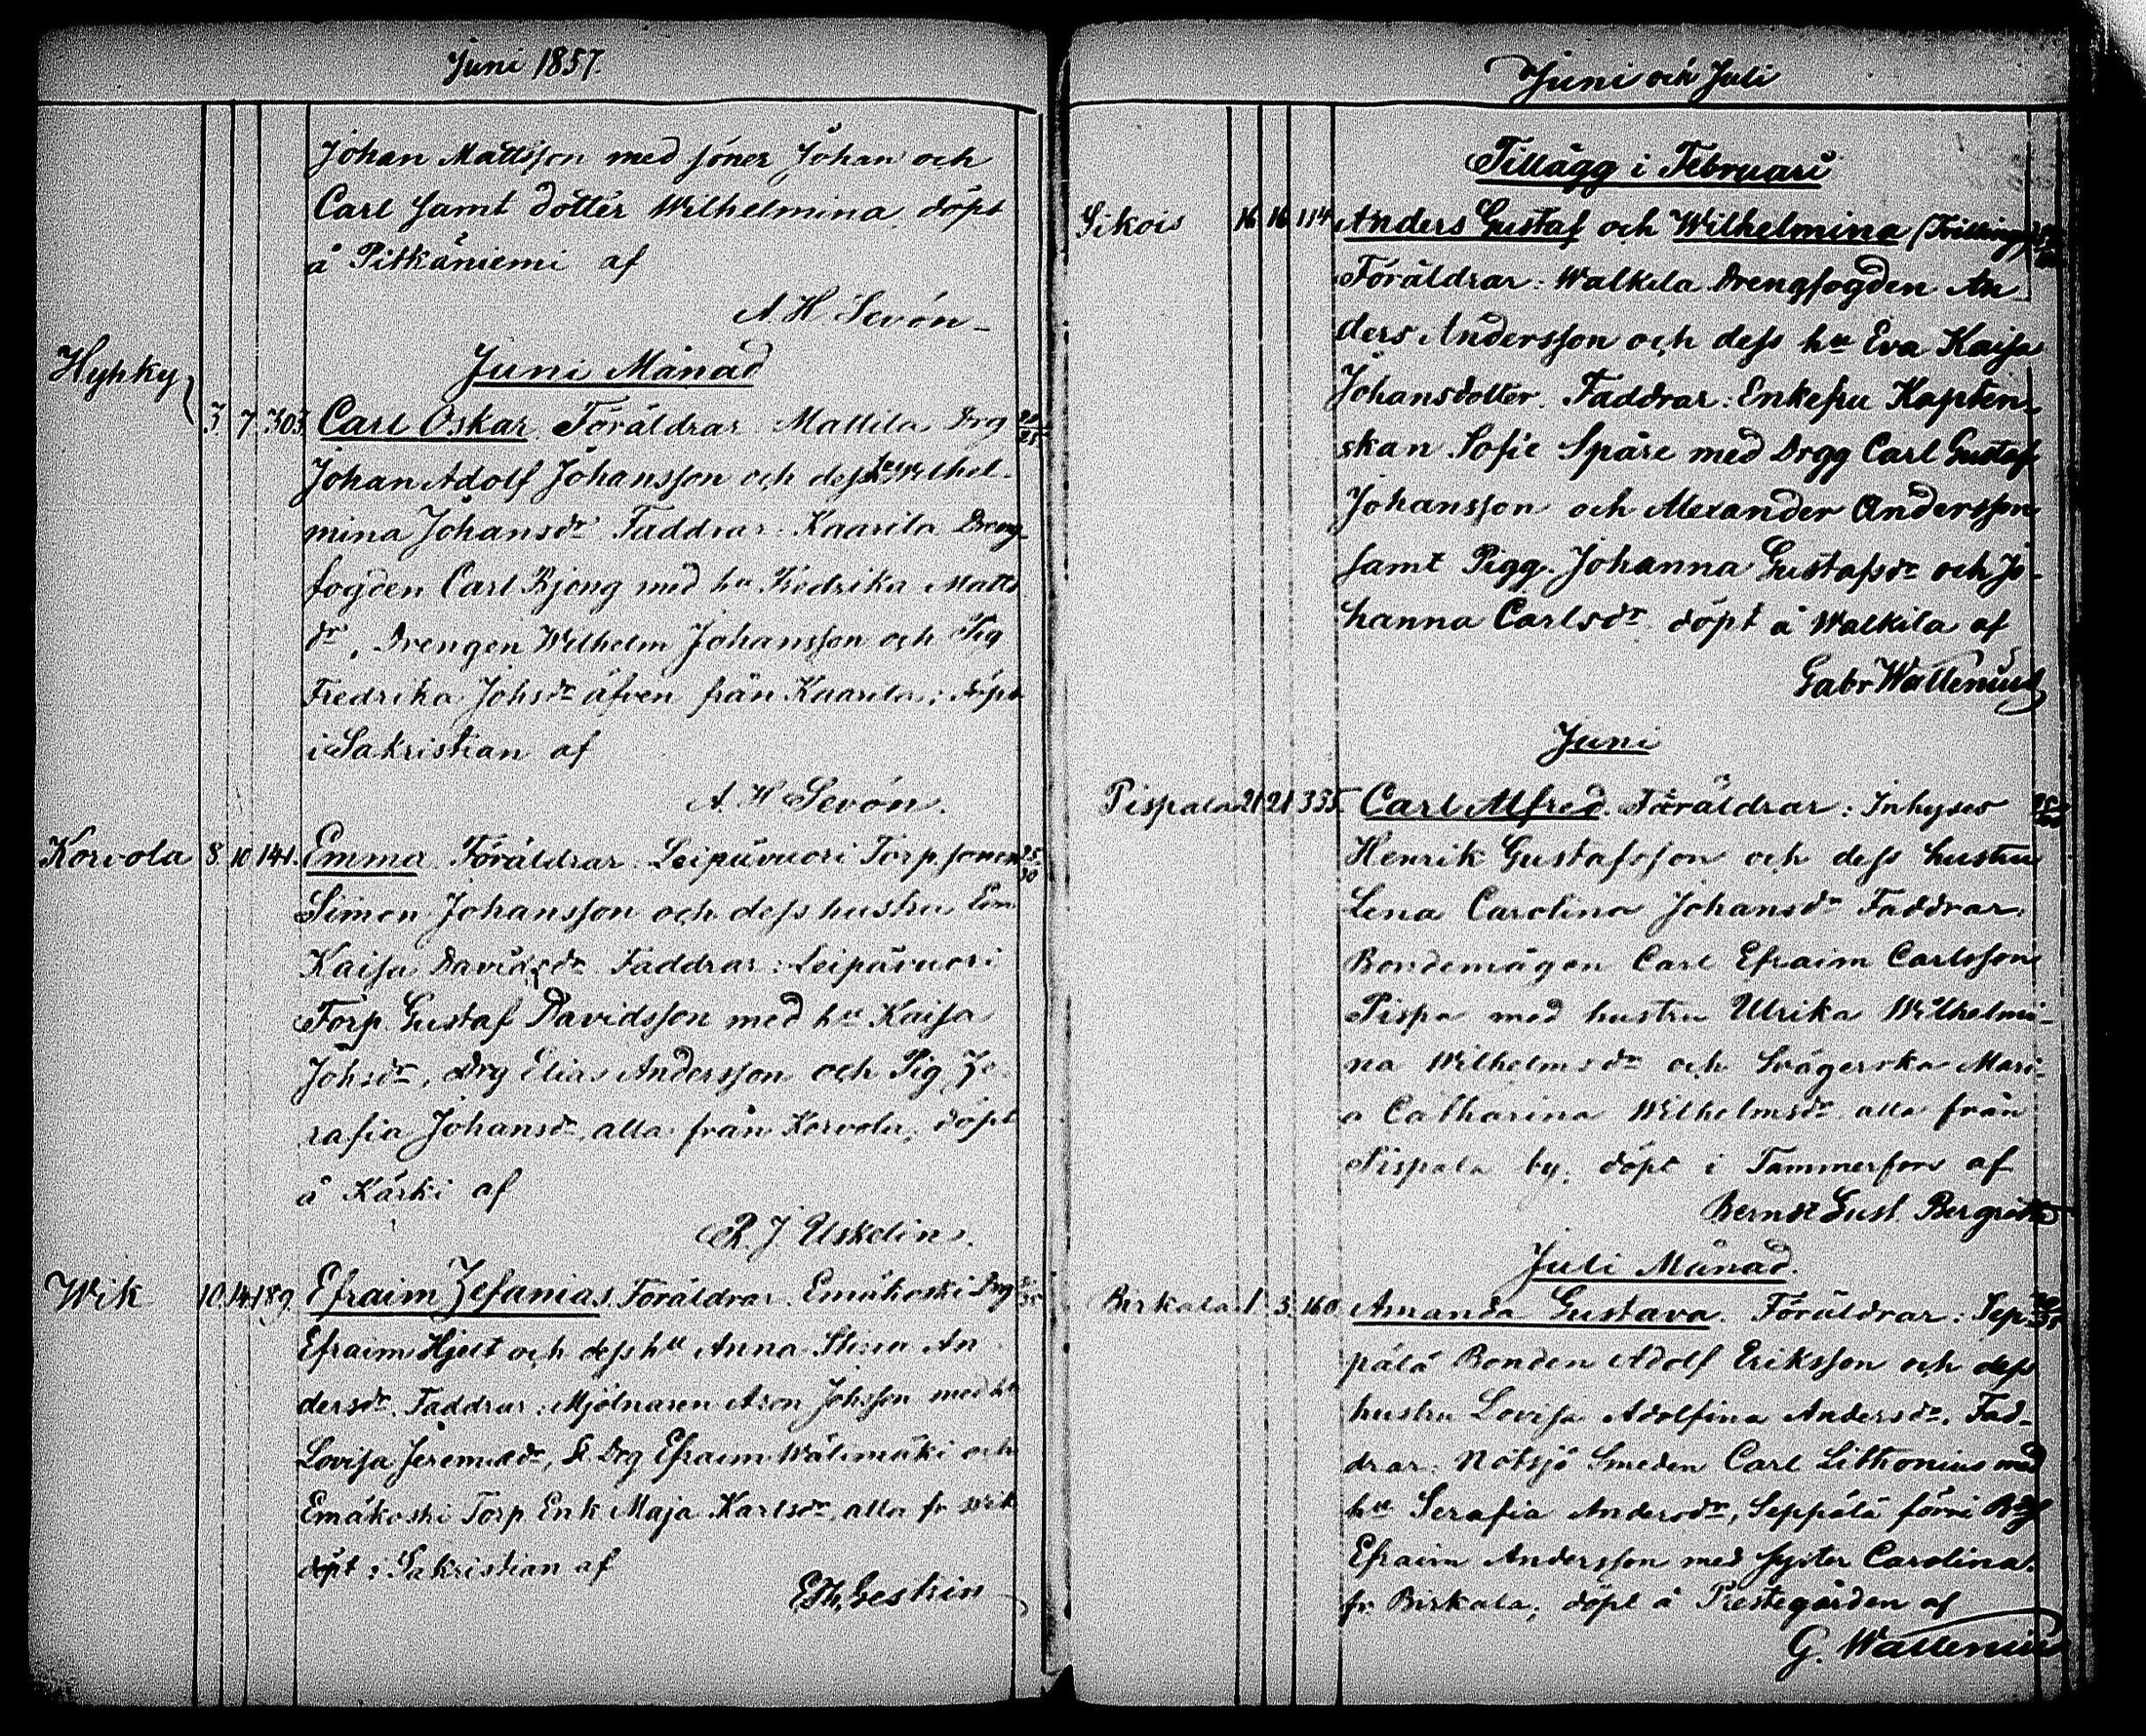 Juni 1857.
Johan Mattsson med söner Johan och
Carl samt dotter Wilhelmina, döpt
å Pitkäniemi af
A. H. Sevón
Juni Månad
Hyhky 3. 7. 303 Carl Oskar. Föräldrar: Mattila Drg
Johan Adolf Johansson och dess hu Wilhel-
mina Johansdr. Faddrar: Kaarila Dreng
fogden Carl Bjong med hu Fredrika Matts
dr, Drengen Wilhelm Johansson och Pig
Fredrika Johsdr äfven från Kaarila; döpt
i Sakristian af
A. H. Sevón.
Korvola 8. 10. 141. Emma. Föräldrar: Leipävuori Torpsonen 25/30
Simon Johansson och dess hustru
Kaisa Davidsdr. Faddrar: Leipävuori
Torp. Gustaf Davidsson med hu Kaisa
Johsdr, Drg Elias Andersson och Pig Ze-
rafia Johansdr, alla från Korvola; döpt
å Kärki af
J. Uskelin.
Wik 10. 14. 189. Efraim Zefanias. Föräldrar: Emäkoski Drg
Efraim Hjelt och dess hu Anna Stina An
dersdr. Faddrar: Mjölnaren Aron Johsson med hu
Lovisa Jeremiædr, Drg Efraim Wälimäki och
Emäkoski Torp. Enk. Maja Karlsdr, alla fr Wik
döpt i Sakristian af
E. Th. Gestrin
Juni och Juli
Tillägg i Februari
Sikois 16 16 114 Anders Gustaf och Wilhelmina (Tvillingar)
Föräldrar: Walkila Drengfogden An
ders Andersson och dess hu Eva Kaisa
Johansdotter. Faddrar: Enkefru Kapten-
skan Sofie Spåre med Drgg Carl Gustaf
Johansson och Alexander Andersson
samt Pigg. Johanna Gustafsdr och Jo-
hanna Carlsdr. döpt å Walkila af
Gabr Wallenius
Juni
Pispala 21. 21. 335. Carl Alfred. Föräldrar: Inhyses
Henrik Gustafsson och dess hustru
Lena Carolina Johansdr. Faddrar:
Bondemågen Carl Efraim Carlsson
Pispa med hustru Ulrika Wilhelmi-
na Wilhelmsdr och Svägerska Mari-
a Catharina Wilhelmsdr, alla från
Pispala by, döpt i Tammerfors af
Bernst Gust. Bergroth
Juli Månad.
Birkala 1. 5. 160 Amanda Gustava. Föräldrar: Sep-
pälä Bonden Adolf Eriksson och dess
hustru Lovisa Adolfina Andersdr. Fad-
drar: Notsjö Smeden Carl Litkonius med
hu Serafia Andersdr, Seppälä förre
Efraim Andersson med syster Carolina.
fr Birkala; döpt å Prestegården af
G. Wallenius